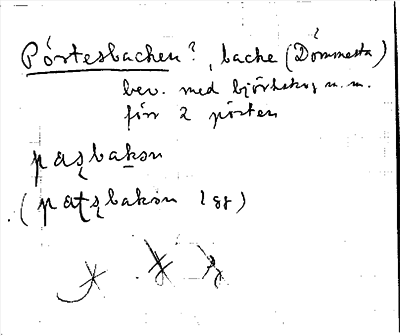 Pörtesbacken?, backe (Dömmesta)
bev. med björkskog m.m.
förr 2 pörten
pasbakən
(patsbakən